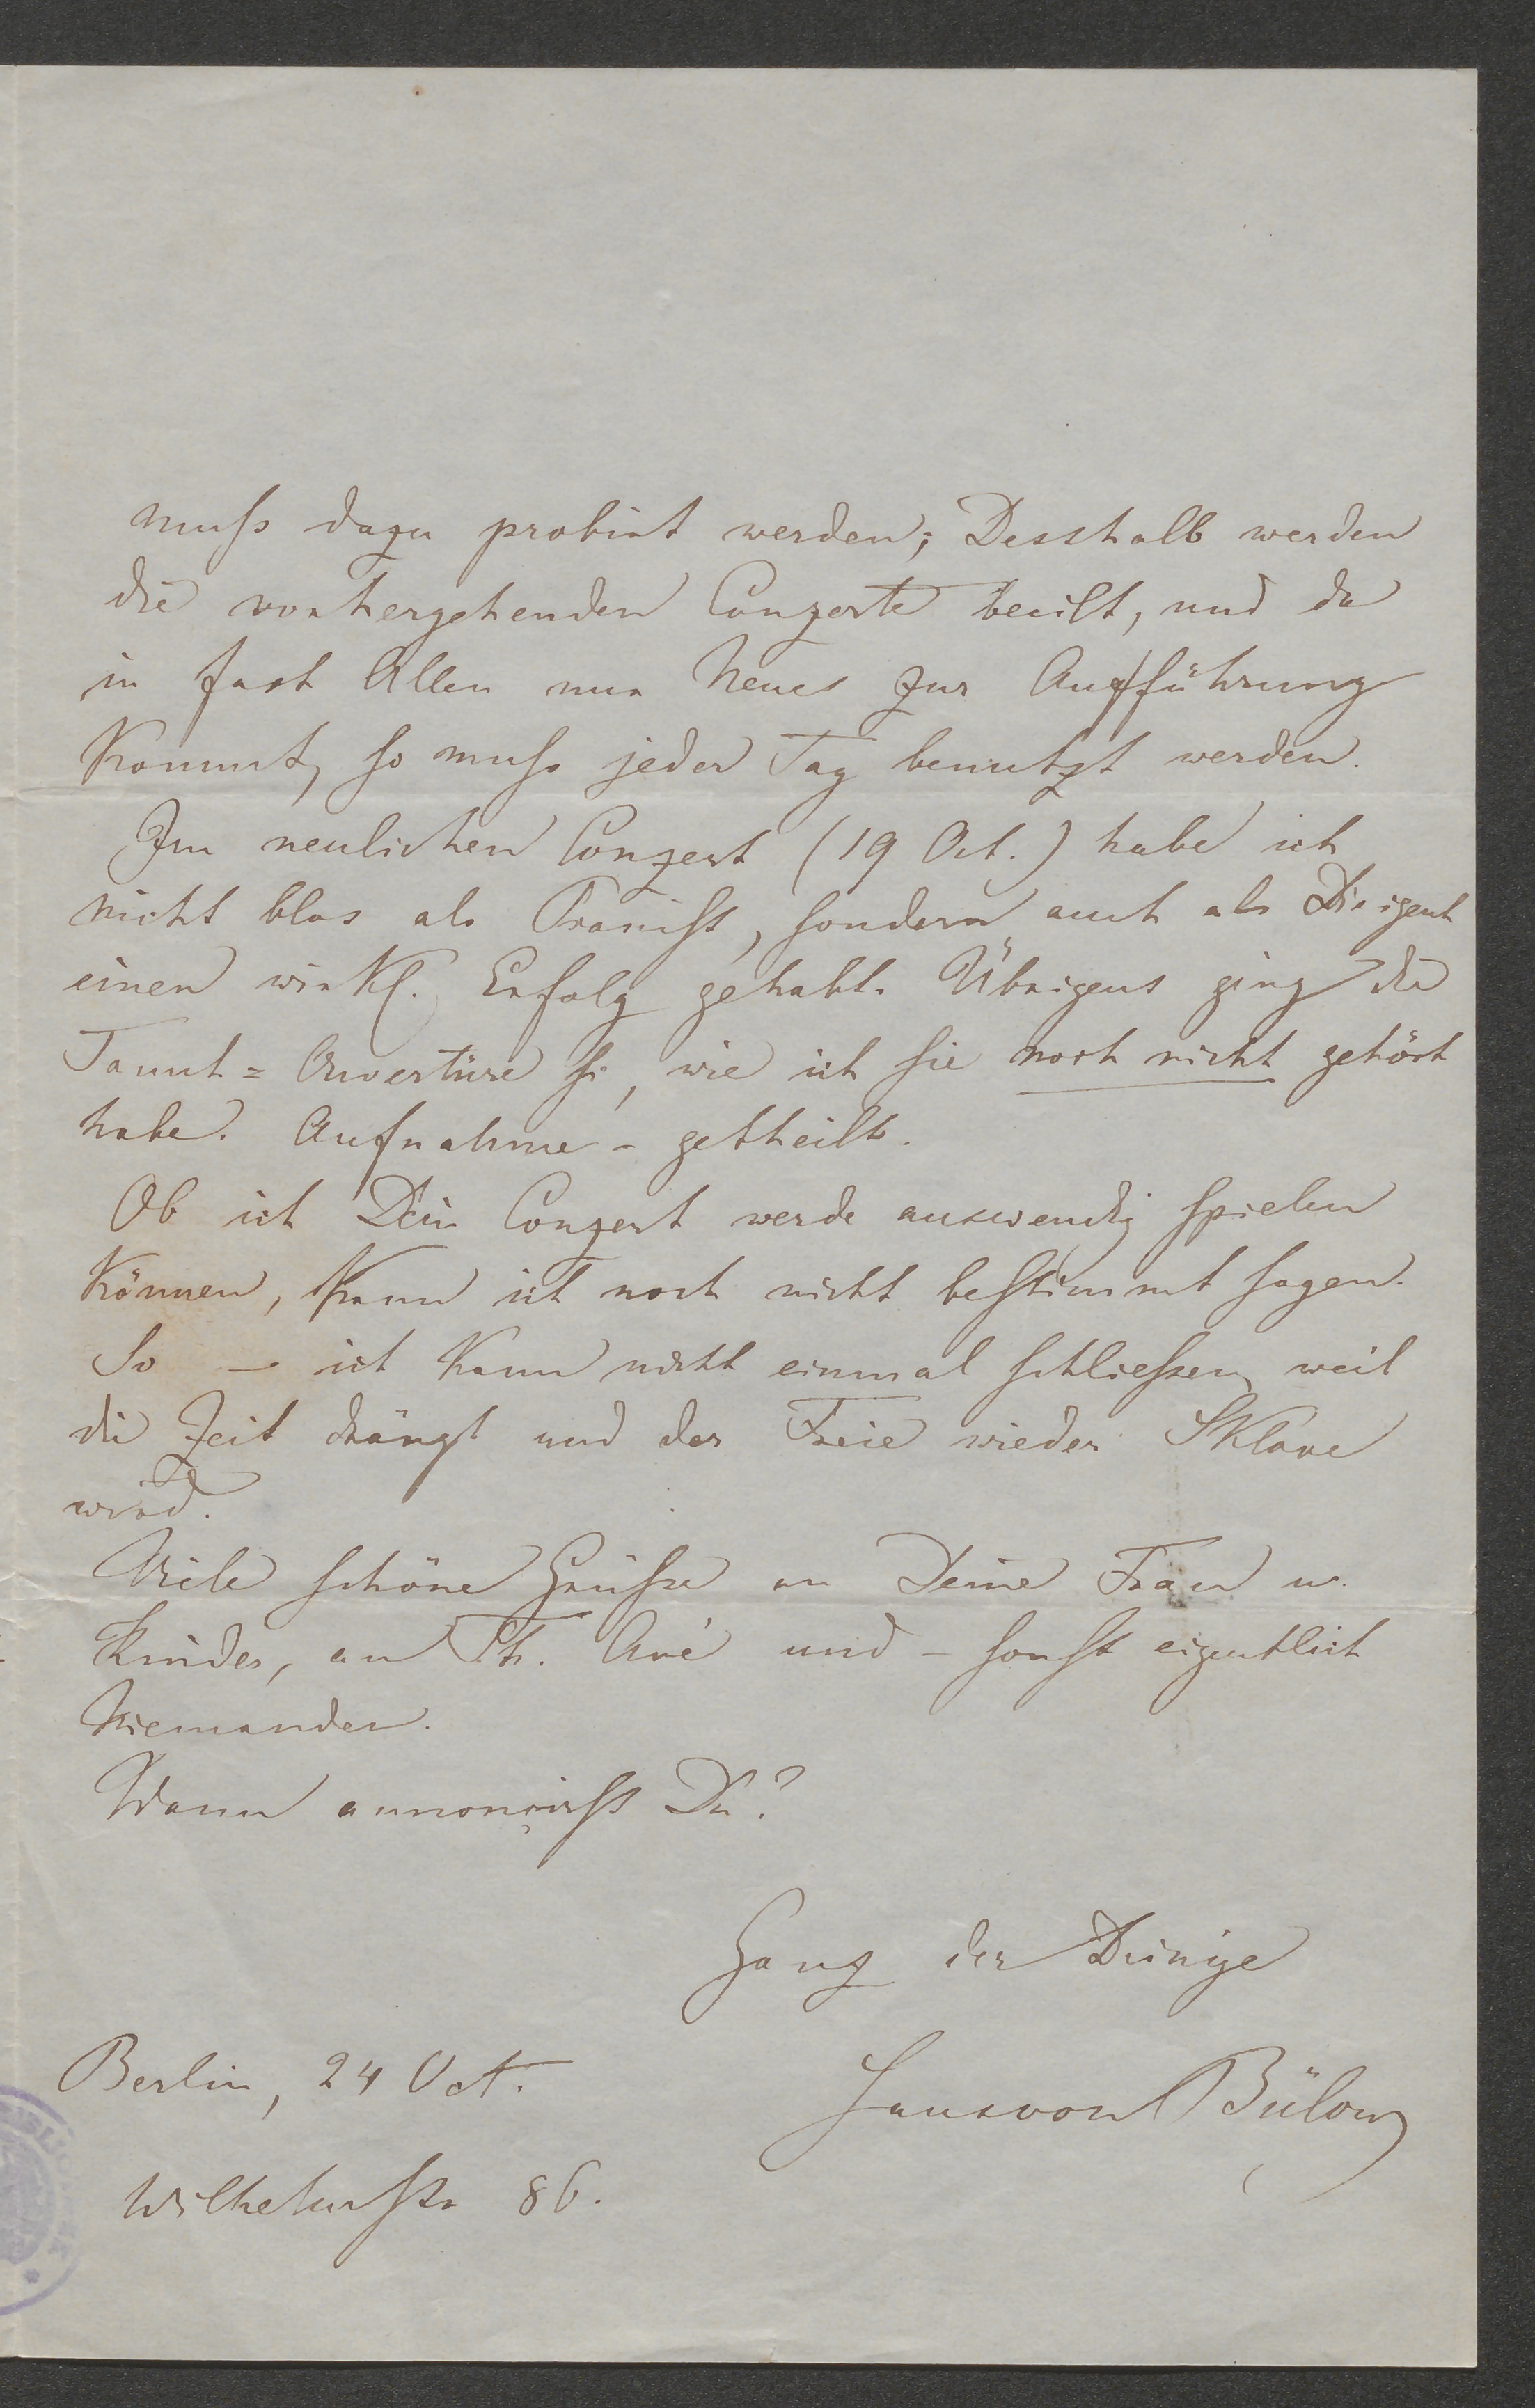 muß dazu probirt werden; Desshalb werden
die vorhergehenden Conzerte beeilt, und da
in fast Allen nur Neues zur Aufführung
kommt, so muß jeder Tag benutzt werden.
Im neulichen Conzert (19 Oct.) habe ich
nicht blos als Pianist, sondern auch als Dirigent
einen wirkl. Erfolg gehabt. Übrigens ging die
Tannh=Ouvertüre so, wie ich sie noch nicht gehört
habe. Aufnahme - getheilt.
Ob ich Dein Conzert werde auswendig spielen
können, kann ich noch nicht bestimmt sagen.
So — ich kann nicht einmal schließen, weil
die Zeit drängt und der Freie wieder Sklave
wird.
Viele schöne Grüße an Deine Frau u.
Kinder, an Th. Avé und - sonst eigentlich
Niemanden.
Wann annoncirst Du?
Ganz der Deinige
Berlin, 24 Oct.
Hans von Bülow
Wilhelmstr 86.